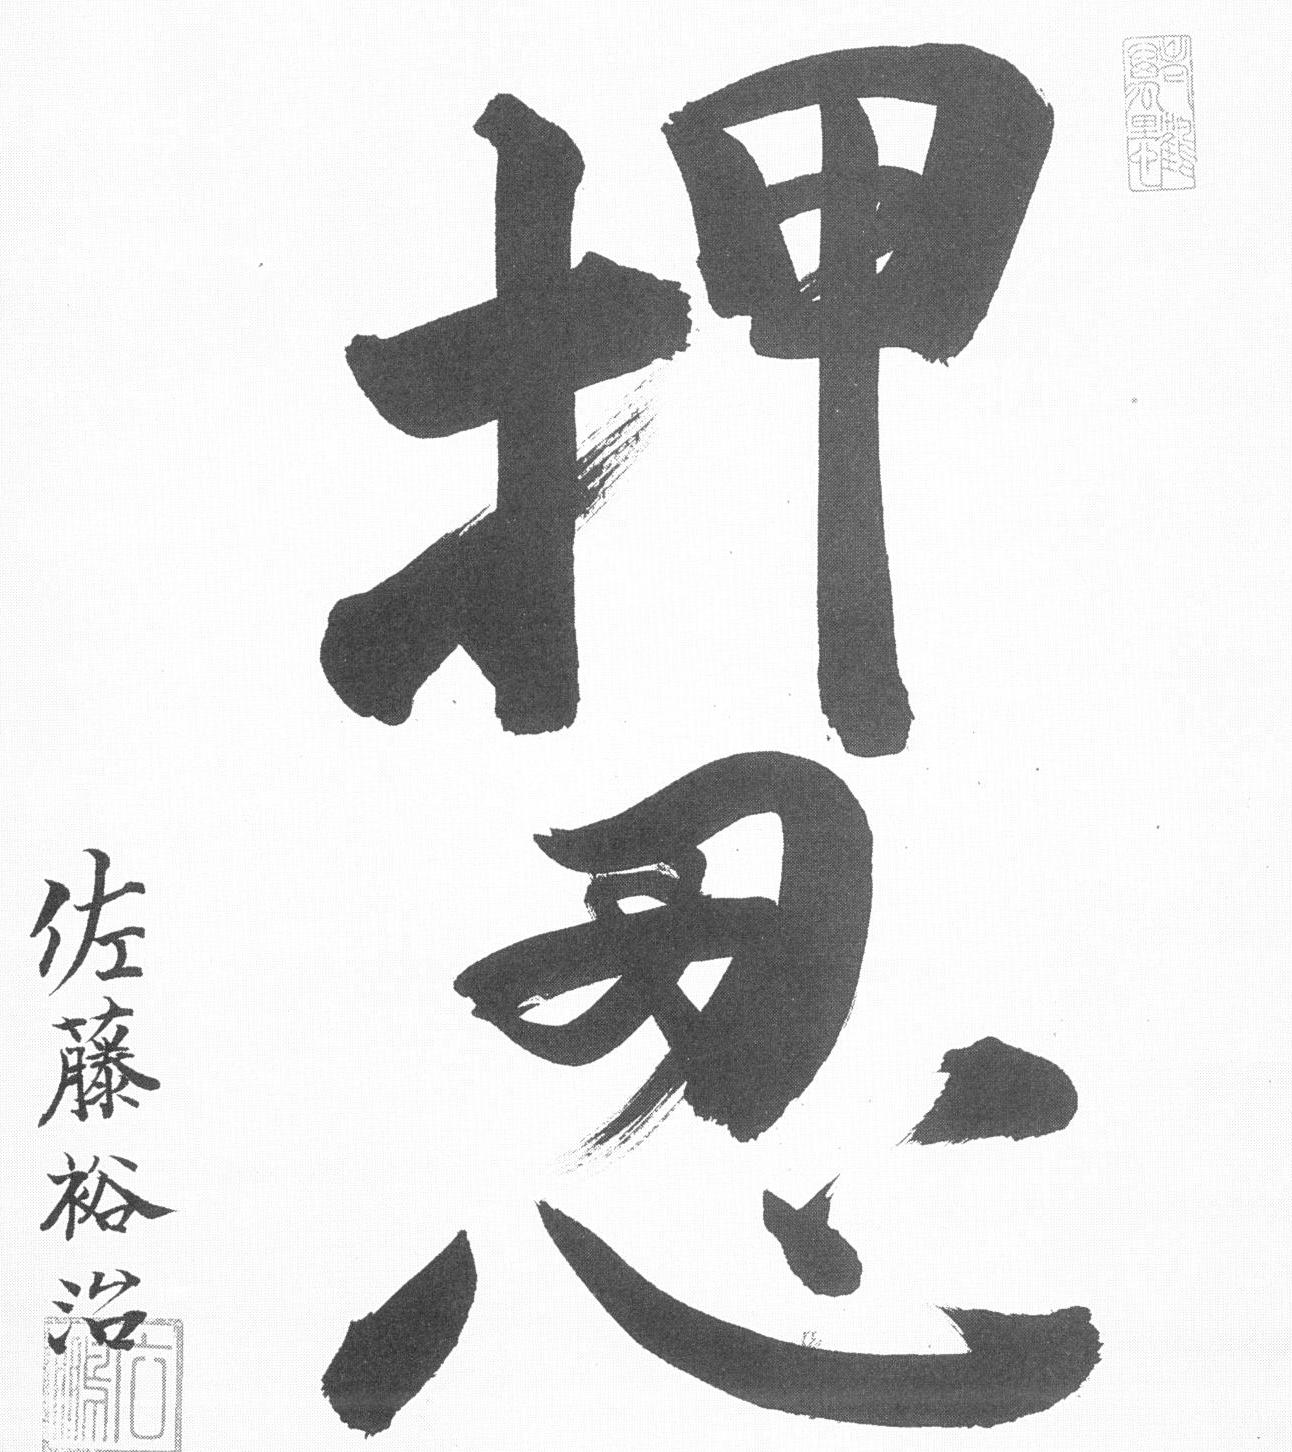 押忍
佐藤裕治